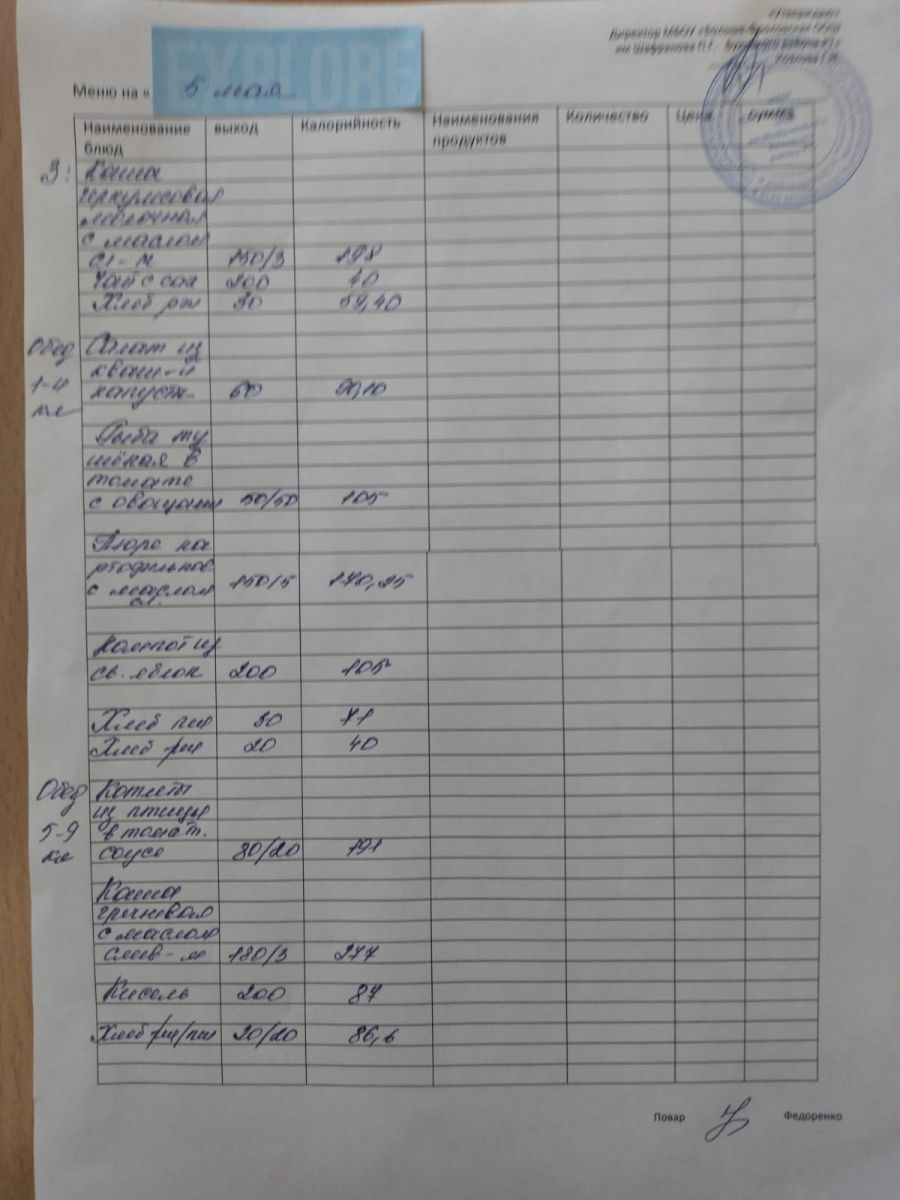 Директор МБОУ
EXPLORE
Меню на « 5 мая
Наименование блюд выход Калорийность Наименования продуктов Количество Цена сумма
З: Каша
геркулесовая
молочная
с маслом
сл-м 150/3 198
Чай с сах 200 40
Хлеб рж 30 59,40
Обед Салат из
кваш-й
1-4 капусты 60
кл
Рыба ту
шёная в
томате
с овощами 50/50 105
Пюре ка
ртофельное
с маслом 150/5 170,25
сл.
Компот из
св. яблок 200 105
Хлеб пш 30 71
Хлеб рж 20 40
Обед Котлеты
из птицы
5-9 в томат.
кл соусе 80/20 191
Каша
гречневая
с маслом
слив-м 180/3 277
Кисель 200 87
Хлеб рж/пш 20/20 86,6
Повар Федоренко